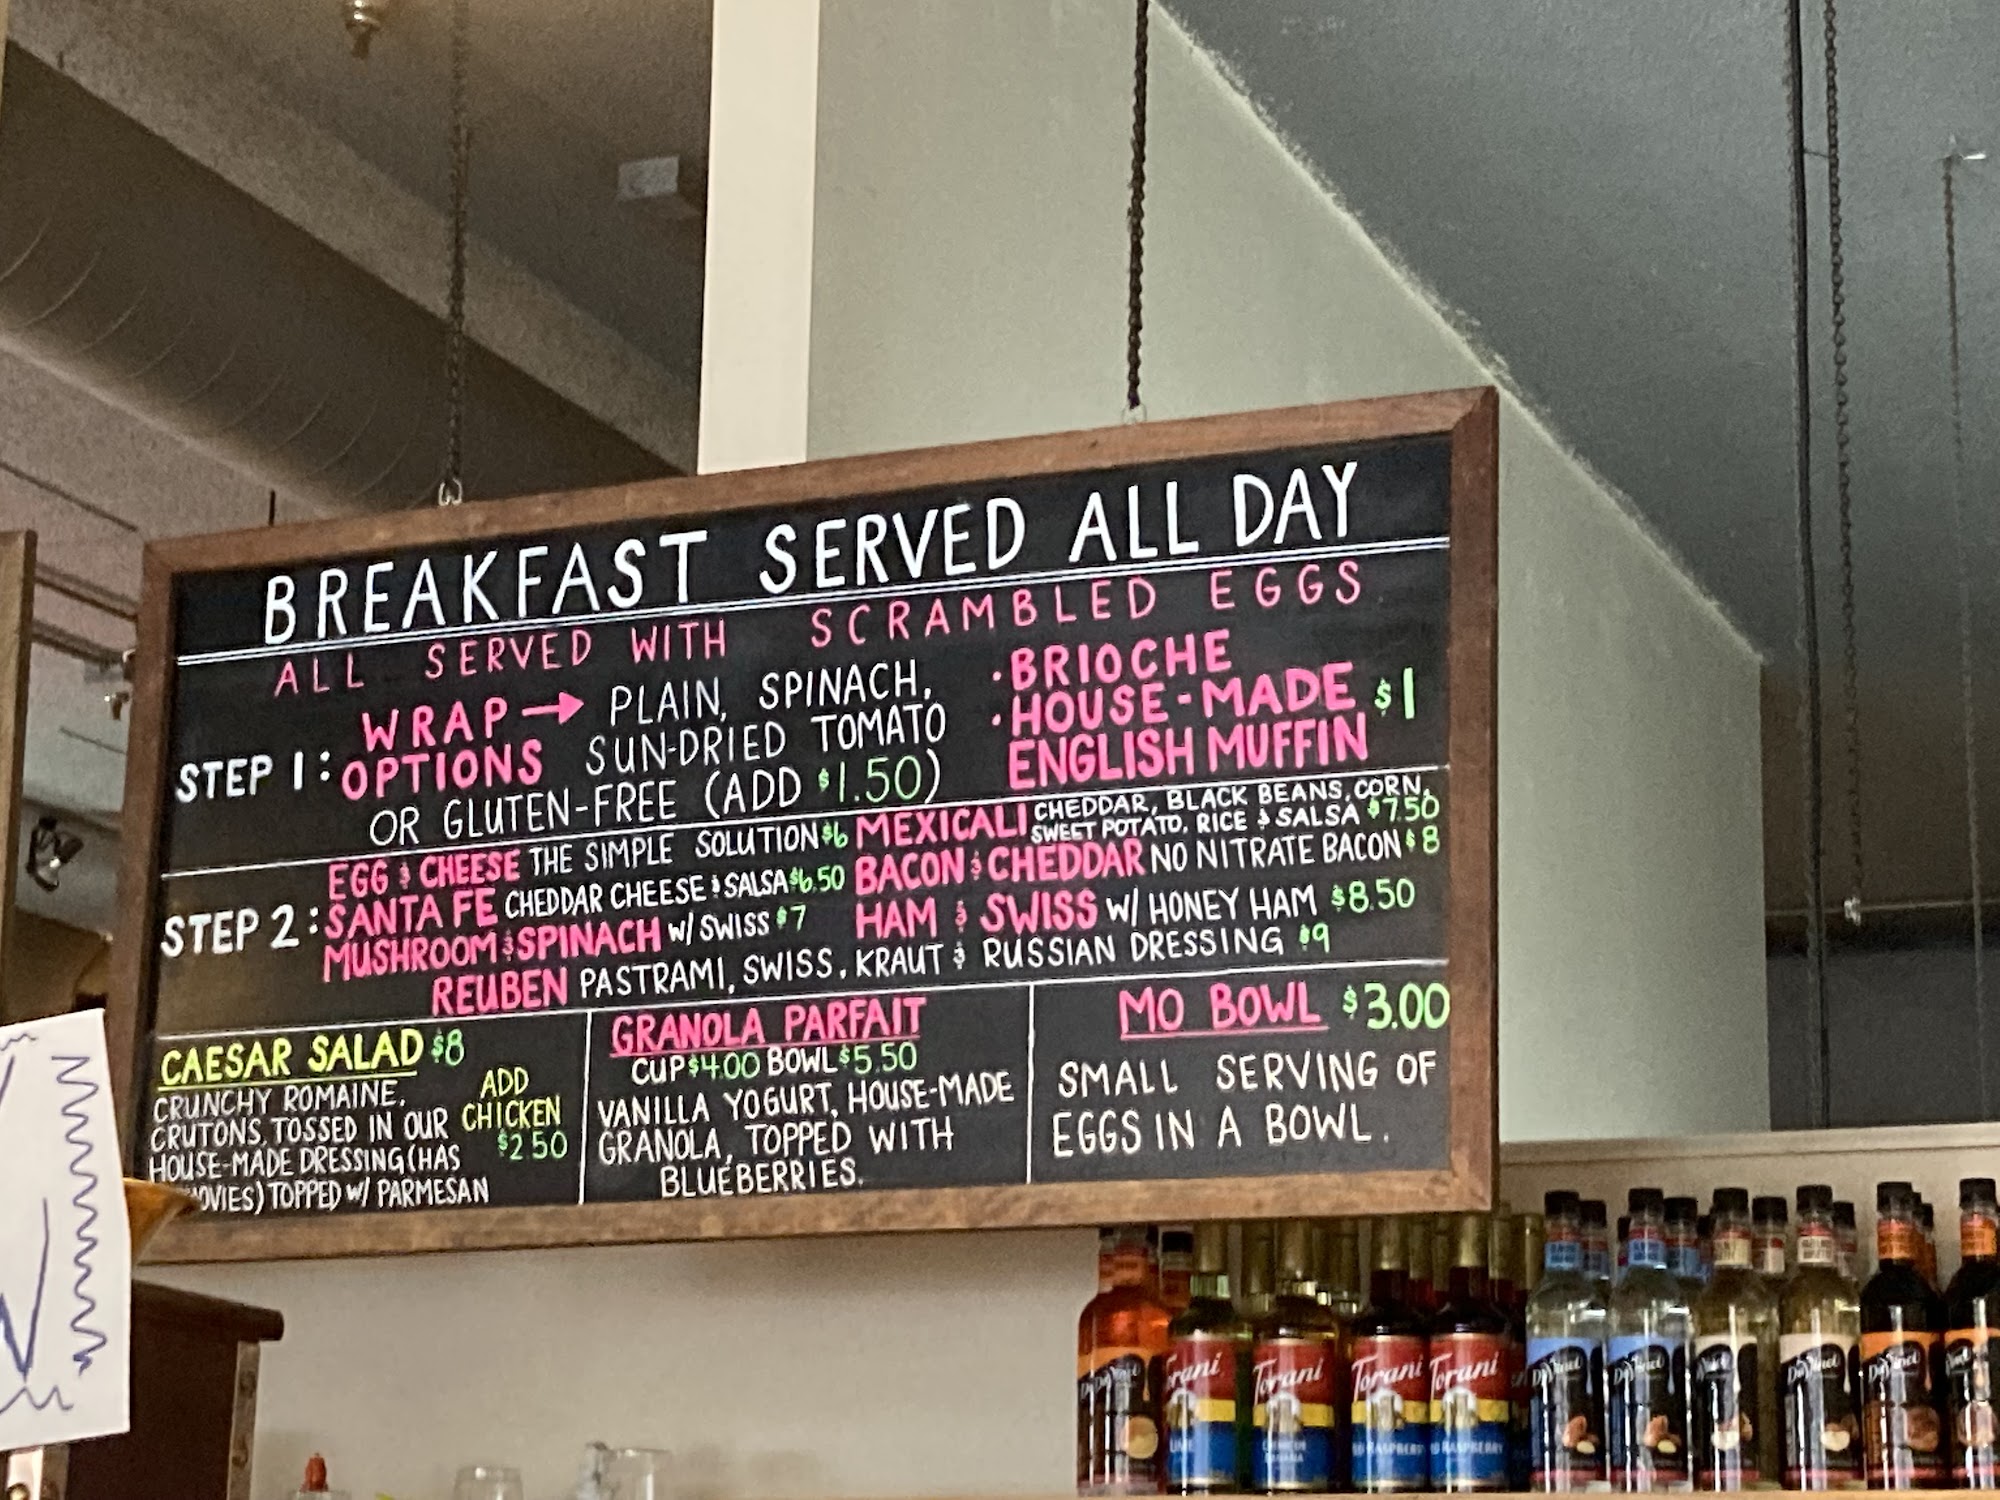 BREAKFAST SERVED ALL DAY
ALL SERVED WITH SCRAMBLED EGGS
STEP 1:
WRAP → PLAIN, SPINACH,
OPTIONS SUN-DRIED TOMATO
OR GLUTEN-FREE (ADD $1.50)
• BRIOCHE
• HOUSE-MADE $1
ENGLISH MUFFIN
STEP 2:
EGG & CHEESE THE SIMPLE SOLUTION $6
SANTA FE CHEDDAR CHEESE & SALSA $6.50
MUSHROOM & SPINACH W/ SWISS $7
MEXICALI CHEDDAR, BLACK BEANS, CORN,
SWEET POTATO, RICE & SALSA $7.50
BACON & CHEDDAR NO NITRATE BACON $8
HAM & SWISS W/ HONEY HAM $8.50
REUBEN PASTRAMI, SWISS, KRAUT & RUSSIAN DRESSING $9
CAESAR SALAD $8
CRUNCHY ROMAINE,
CRUTONS, TOSSED IN OUR
HOUSE-MADE DRESSING (HAS
TOPPED W/ PARMESAN
ADD
CHICKEN
$2.50
GRANOLA PARFAIT
CUP $4.00 BOWL $5.50
VANILLA YOGURT, HOUSE-MADE
GRANOLA, TOPPED WITH
BLUEBERRIES.
MO BOWL $3.00
SMALL SERVING OF
EGGS IN A BOWL.
DaVinci
Torani
Torani
Torani
RASPBERRY
Torani
RASPBERRY
DaVinci
DaVinci
DaVinci
DaVinci